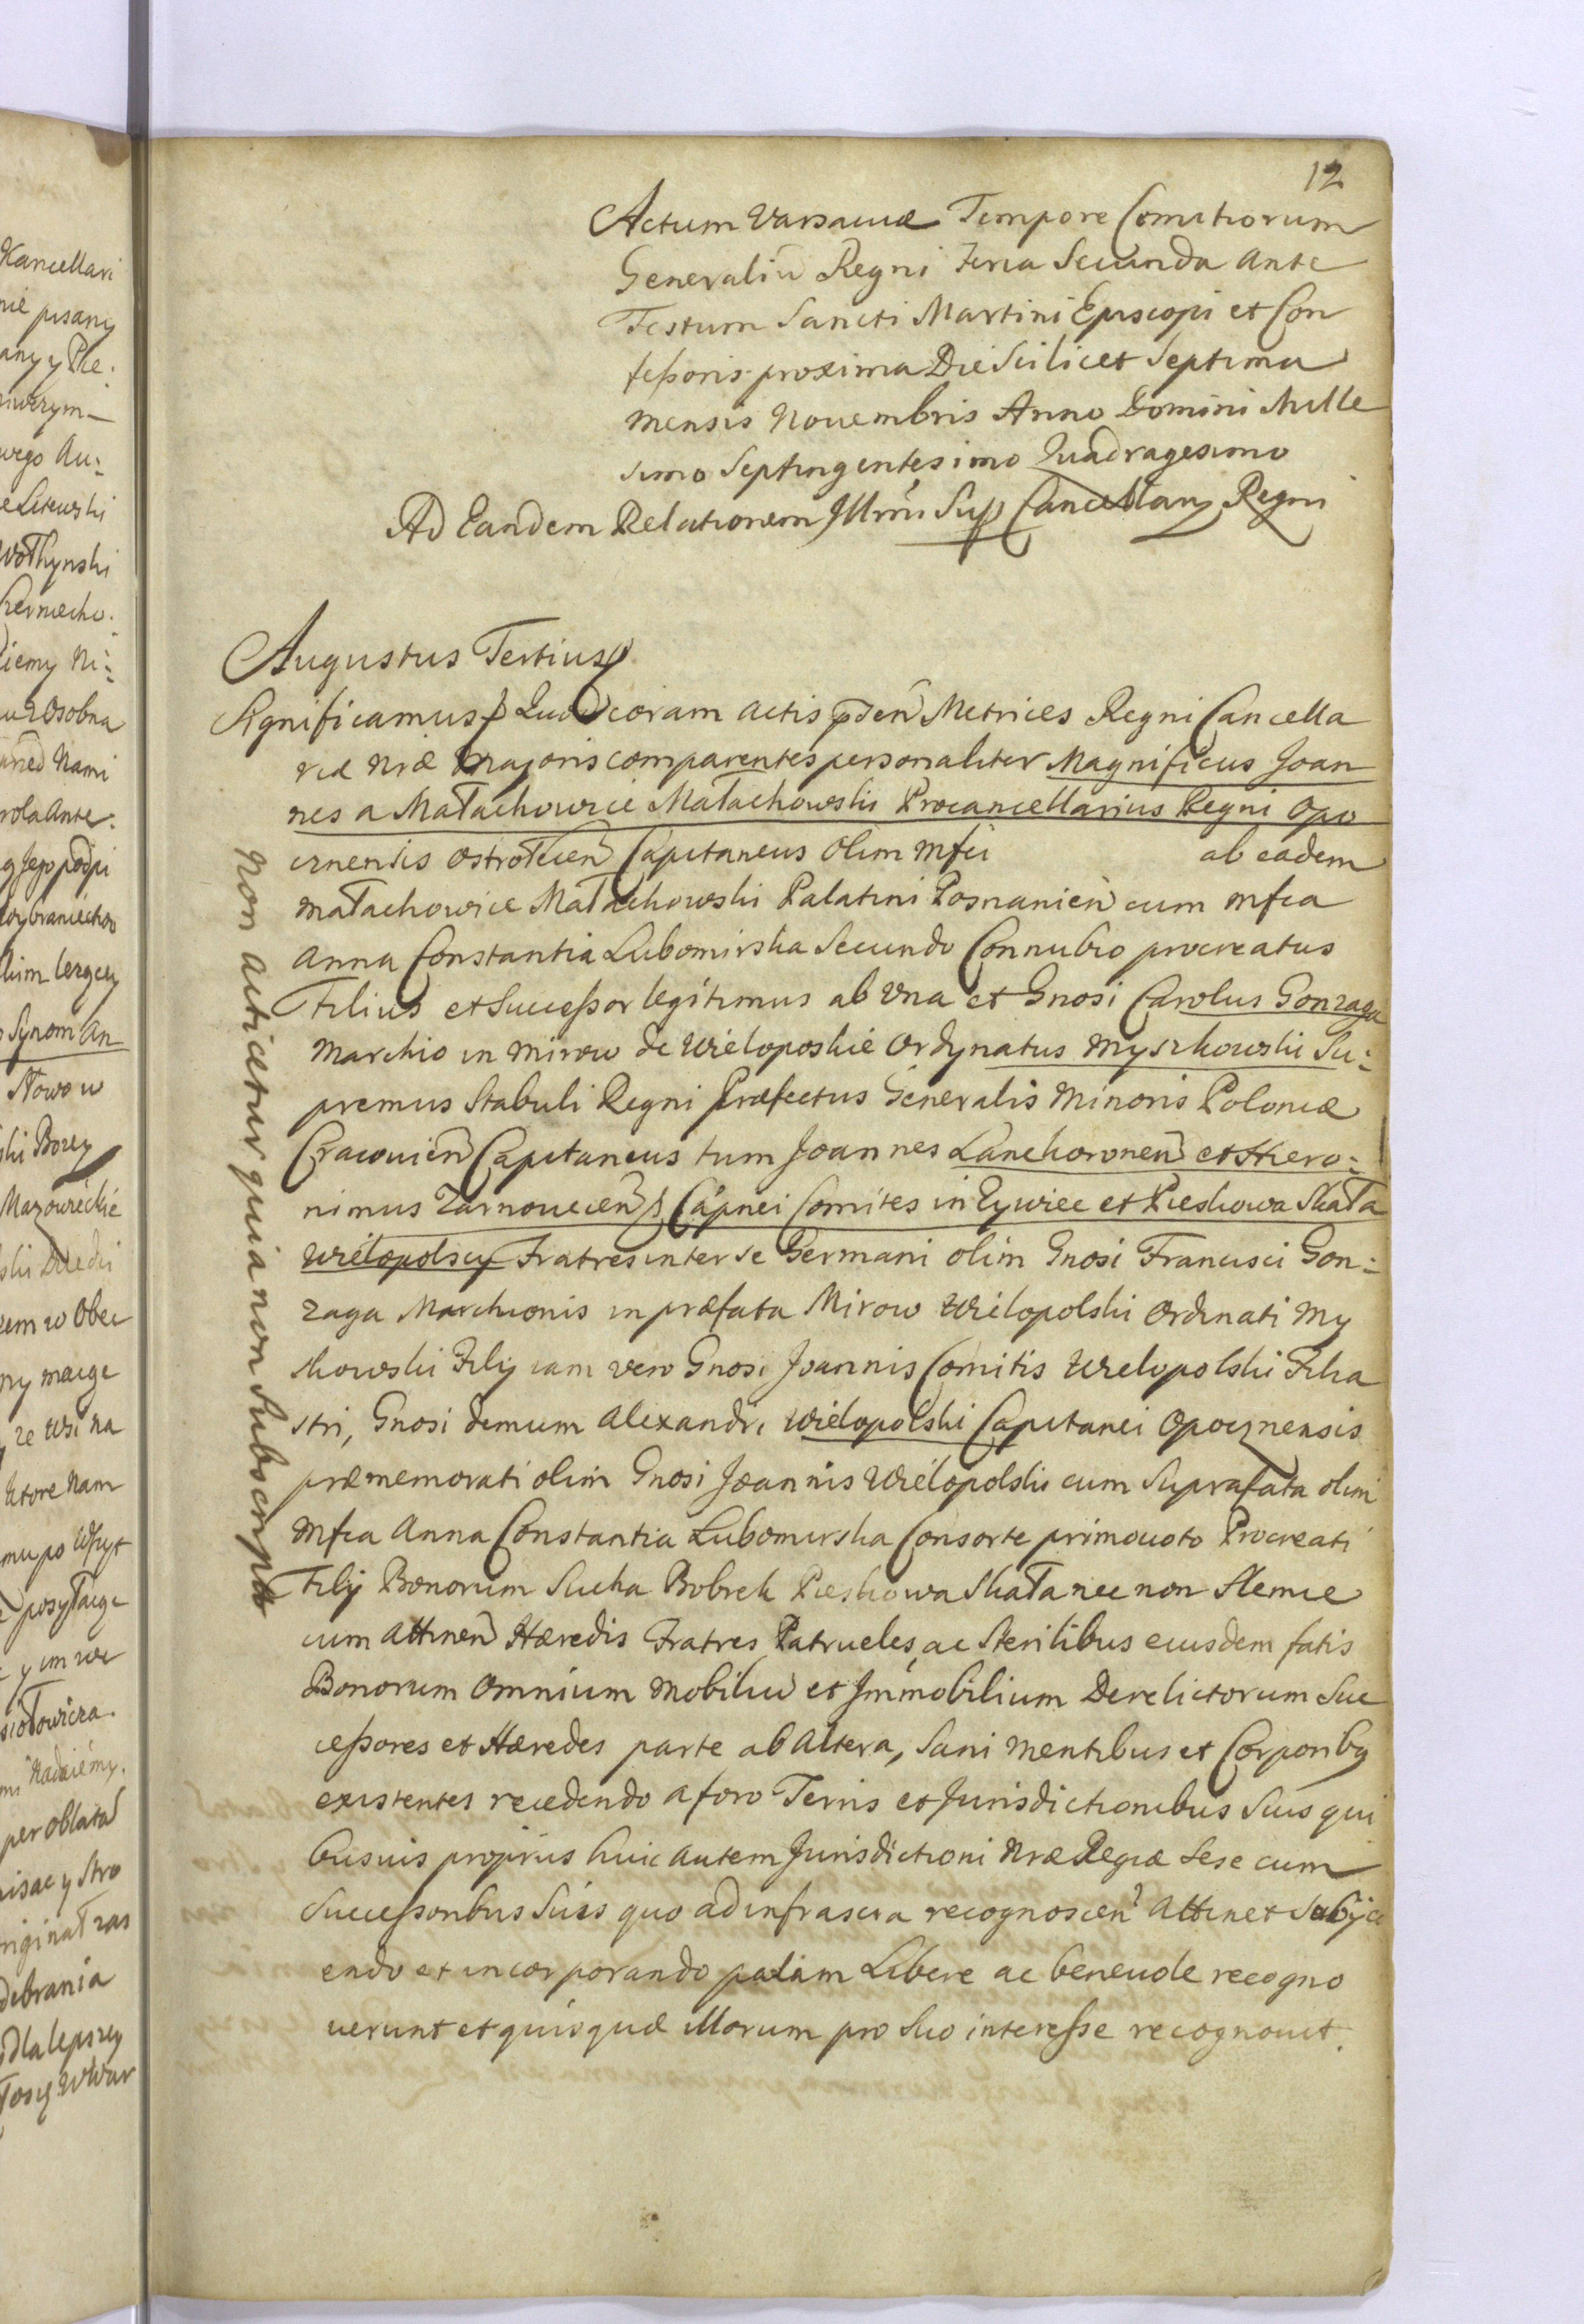 Kancellari
nie pisany
any y Pie.
nwerym
wego Au:
e Litewski
Wołhynski
Czerniecho.
iemy Ni:
u z Osobna
Nami
rola Ante.
g Jego podpi
oybraniechow
kim lezący
Synom An
Słowo w
ski Borey
Mazowieckie
zem w Obec
ny maige
ze Wsi na
ktore Nam
mu po Wszyt
posyłaige
y im we
siołowicza.
Nadaiemy.
per oblatā
pisac y Stro
riginał zas
debrania
dla lepszey
łosię w War
12
Actum Varsaviæ Tempore Comitiorum
Generaliū Regni Feria Secunda Ante
Festum Sancti Martini Episcopi et Con
feſsoris proxima Die Scilicet Septima
mensis Novembris Anno Domini Mille
simo Septingentesimo Quadragesimo
Ad Eandem Relationem Illrmi Sup Cancellarÿ Regni
Augustus Tertius
Significamus Quod coram actis pden Metrices Regni Cancella
riæ Nræ Majoris comparentes personaliter Magnificus Joan
nes a Małachowice Małachowski Procancellarius Regni Opo
cznensis Ostrołecen Capitaneus Olim Mfci ab eadem
Małachowice Małachowski Palatini Posnanien cum Mfca
Anna Constantia Lubomirska Secundo Connubio procreatus
Filius et Succeſsor legitimus ab Una et Gnosi Carolus Gonzaga
Marchio in Mirow de Wieloposkie Ordynatus Myszkowski Su:
premus Stabuli Regni Præfectus Generalis Minoris Poloniæ
Cracovien Capitaneus tum Joannes Lanckoronen et Hiero:
nimus Zarnovecen Capnei Comites in Zywiec et Pieskowa Skała
Wielopolscy Fratres inter se Germani olim Gnosi Francisci Gon:
zaga Marchionis in præfata Mirow Wielopolski Ordinati My
skowski Filij iam vero Gnosi Joannis Comitis Wielopolski Filia
stri, Gnosi demum Alexandri Wielopolski Capitanei Opocznensis
præmemorati olim Gnosi Joannis Wielopolski cum Suprafata olim
Mfca Anna Constantia Lubomirska Consorte primovoto Procreati
Filij Bonorum Sucha Bobrek Pieskowa Skała nec non Slemie
cum Attinen Hæredis Fratres Patrueles, ac Sterilibus eiusdem fatis
Bonorum Omnium Mobiliū et Immobilium Derelictorum Suc
ceſsores et Hæredes parte ab Altera, Sani Mentibus et Corporibꝫ
existentes recedendo a foro Terris et Jurisdictionibus Suis qui
busvis proprijs huic autem Jurisdictioni Nræ Regiæ Sese cum
Succeſsoribus Suis quo ad infrascra recognoscen Attinet Subijci
endo et incorporando palam Libere ac benevole recogno
verunt et quisquæ illorum pro Suo intereſse recognovit.
Non acticetur quia non Subscripta